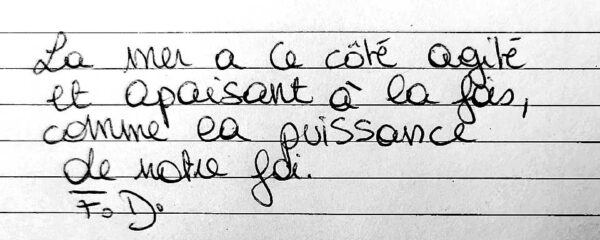 La mer a ce côté agité
et apaisant à la fois,
comme la puissance
de notre foi.
F. D.